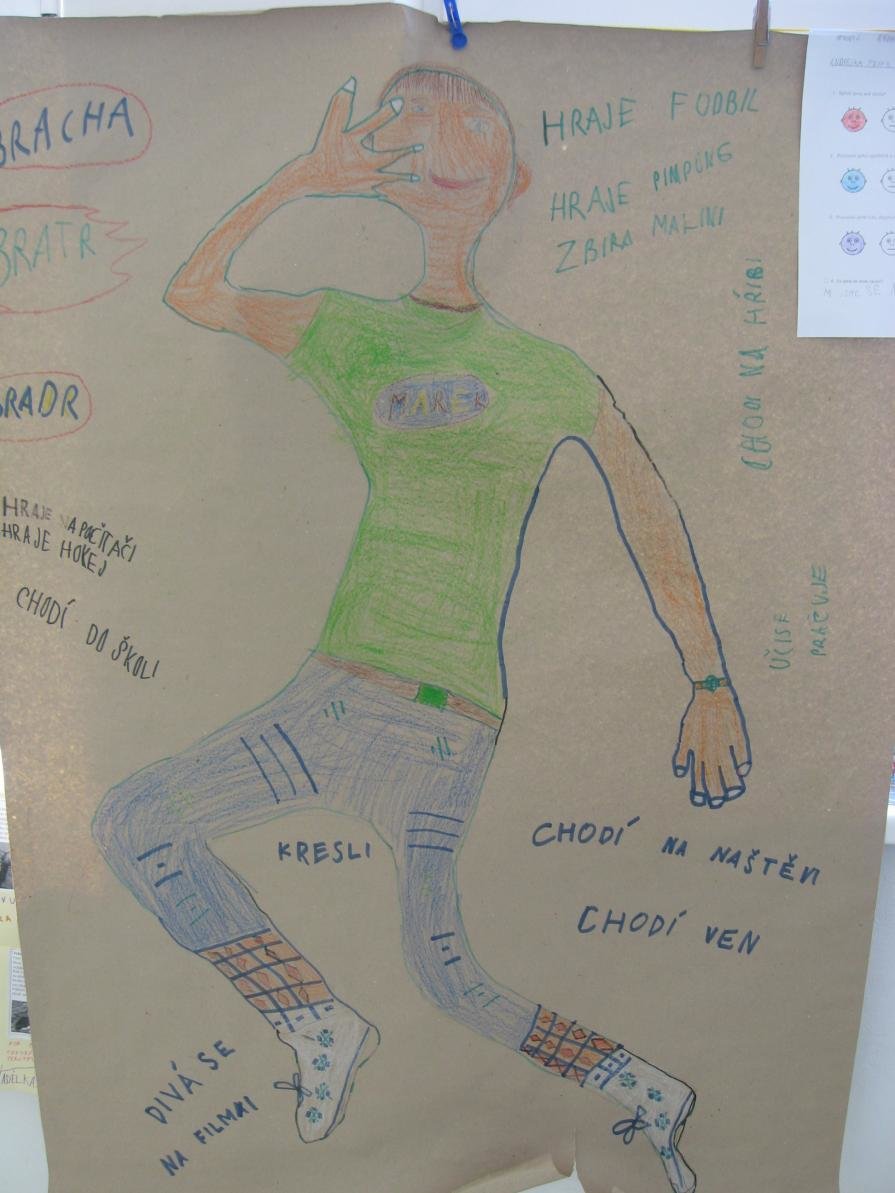 BRACHA
BRATR
BRADR
HRAJE NA POČÍTAČI
HRAJE HOKEJ
CHODÍ DO ŠKOLI
HRAJE FODBIL
HRAJE PIMPONG
ZBIRA MALINI
CHODI NA HŘIBI
UČISE
PRACUJE
MAREK
KRESLI
CHODÍ NA NAŠTĚV
CHODÍ VEN
DIVÁ SE
NA FILMI